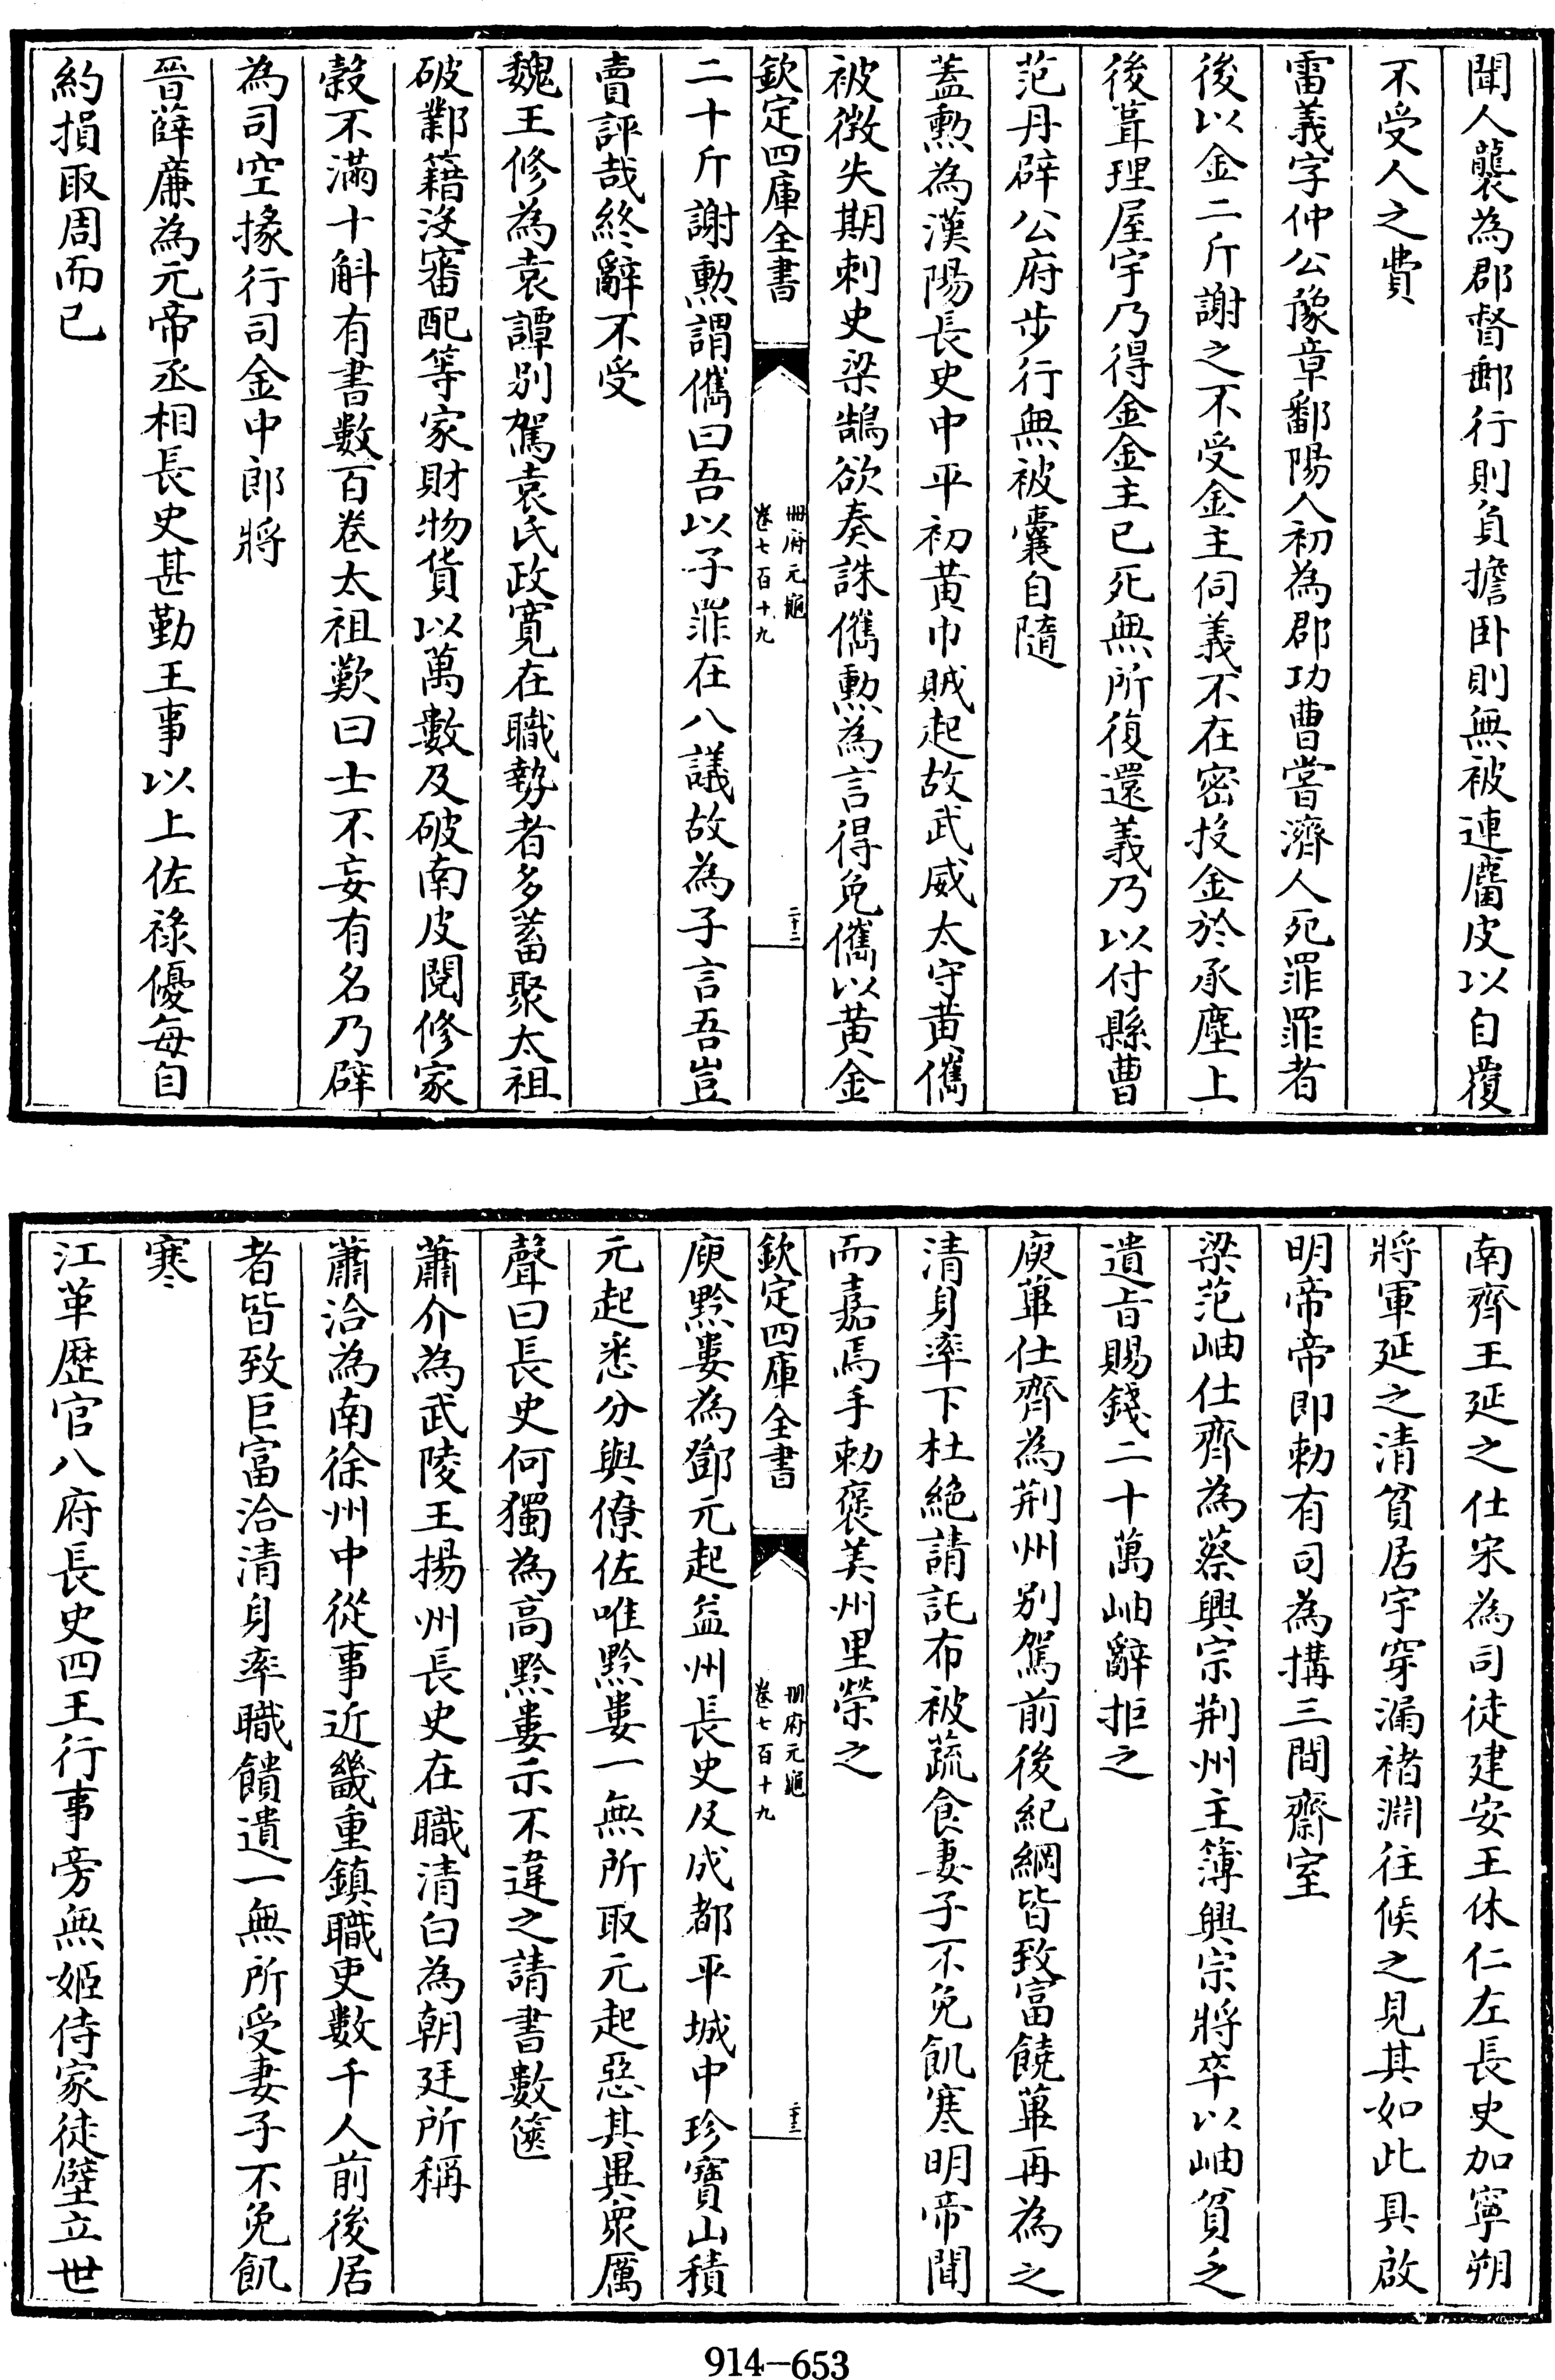 聞人襲為郡督郵行則負擔卧則無被連㕓皮以自覆
不受人之費
雷義字仲公豫章鄱陽人初為郡功曹嘗濟人死罪罪者
後以金二斤謝之不受金主伺義不在密投金於承塵上
後葺理屋宇乃得金金主已死無所復還義乃以付縣曹
范丹辟公府步行無被囊自隨
蓋勲為漢陽長史中平初黄巾賊起故武威太守黄儁
被徴失期刺史梁鵠欲奏誅儁勲為言得免儁以黄金
欽定四庫全書
冊府元龜
卷七百十九
二十二
二十斤謝勲謂儁曰吾以子罪在八議故為子言吾豈
賣評哉終辭不受
魏王修為袁譚别駕袁氏政寛在職勢者多蓄聚太祖
破鄴籍沒審配等家財物貨以萬數及破南皮閲修家
榖不滿十斛有書數百卷太祖歎曰士不妄有名乃辟
為司空掾行司金中郎將
晉薛蕭為元帝丞相長史甚勤王事以上佐祿優每自
約損取周而已
南齊王延之仕宋為司徒建安王休仁左長史加寧朔
將軍延之清貧居宇穿漏褚淵往候之見其如此具啟
明帝帝即勅有司為搆三間齋室
梁范岫仕齊為蔡興宗荆州主簿興宗將卒以岫貧乏
遺旨賜錢二十萬岫辭拒之
庾蓽仕齊為荆州别駕前後紀綱皆致富饒蓽再為之
清身率下杜絶請託布被蔬食妻子不免飢寒明帝聞
而嘉焉手勅褒美州里榮之
欽定四庫全書
冊府元龜
卷七百十九
二十三
庾黔婁為鄧元起益州長史及成都平城中珍寶山積
元起悉分與僚佐唯黔婁一無所取元起惡其異衆厲
聲曰長史何獨為高黔婁示不違之請書數篋
蕭介為武陵王揚州長史在職清白為朝廷所稱
蕭洽為南徐州中從事近畿重鎮職吏數千人前後居
者皆致巨富洽清身率職饋遺一無所受妻子不免飢
寒
江革歴官八府長史四王行事旁無姬侍家徒壁立世
914-653